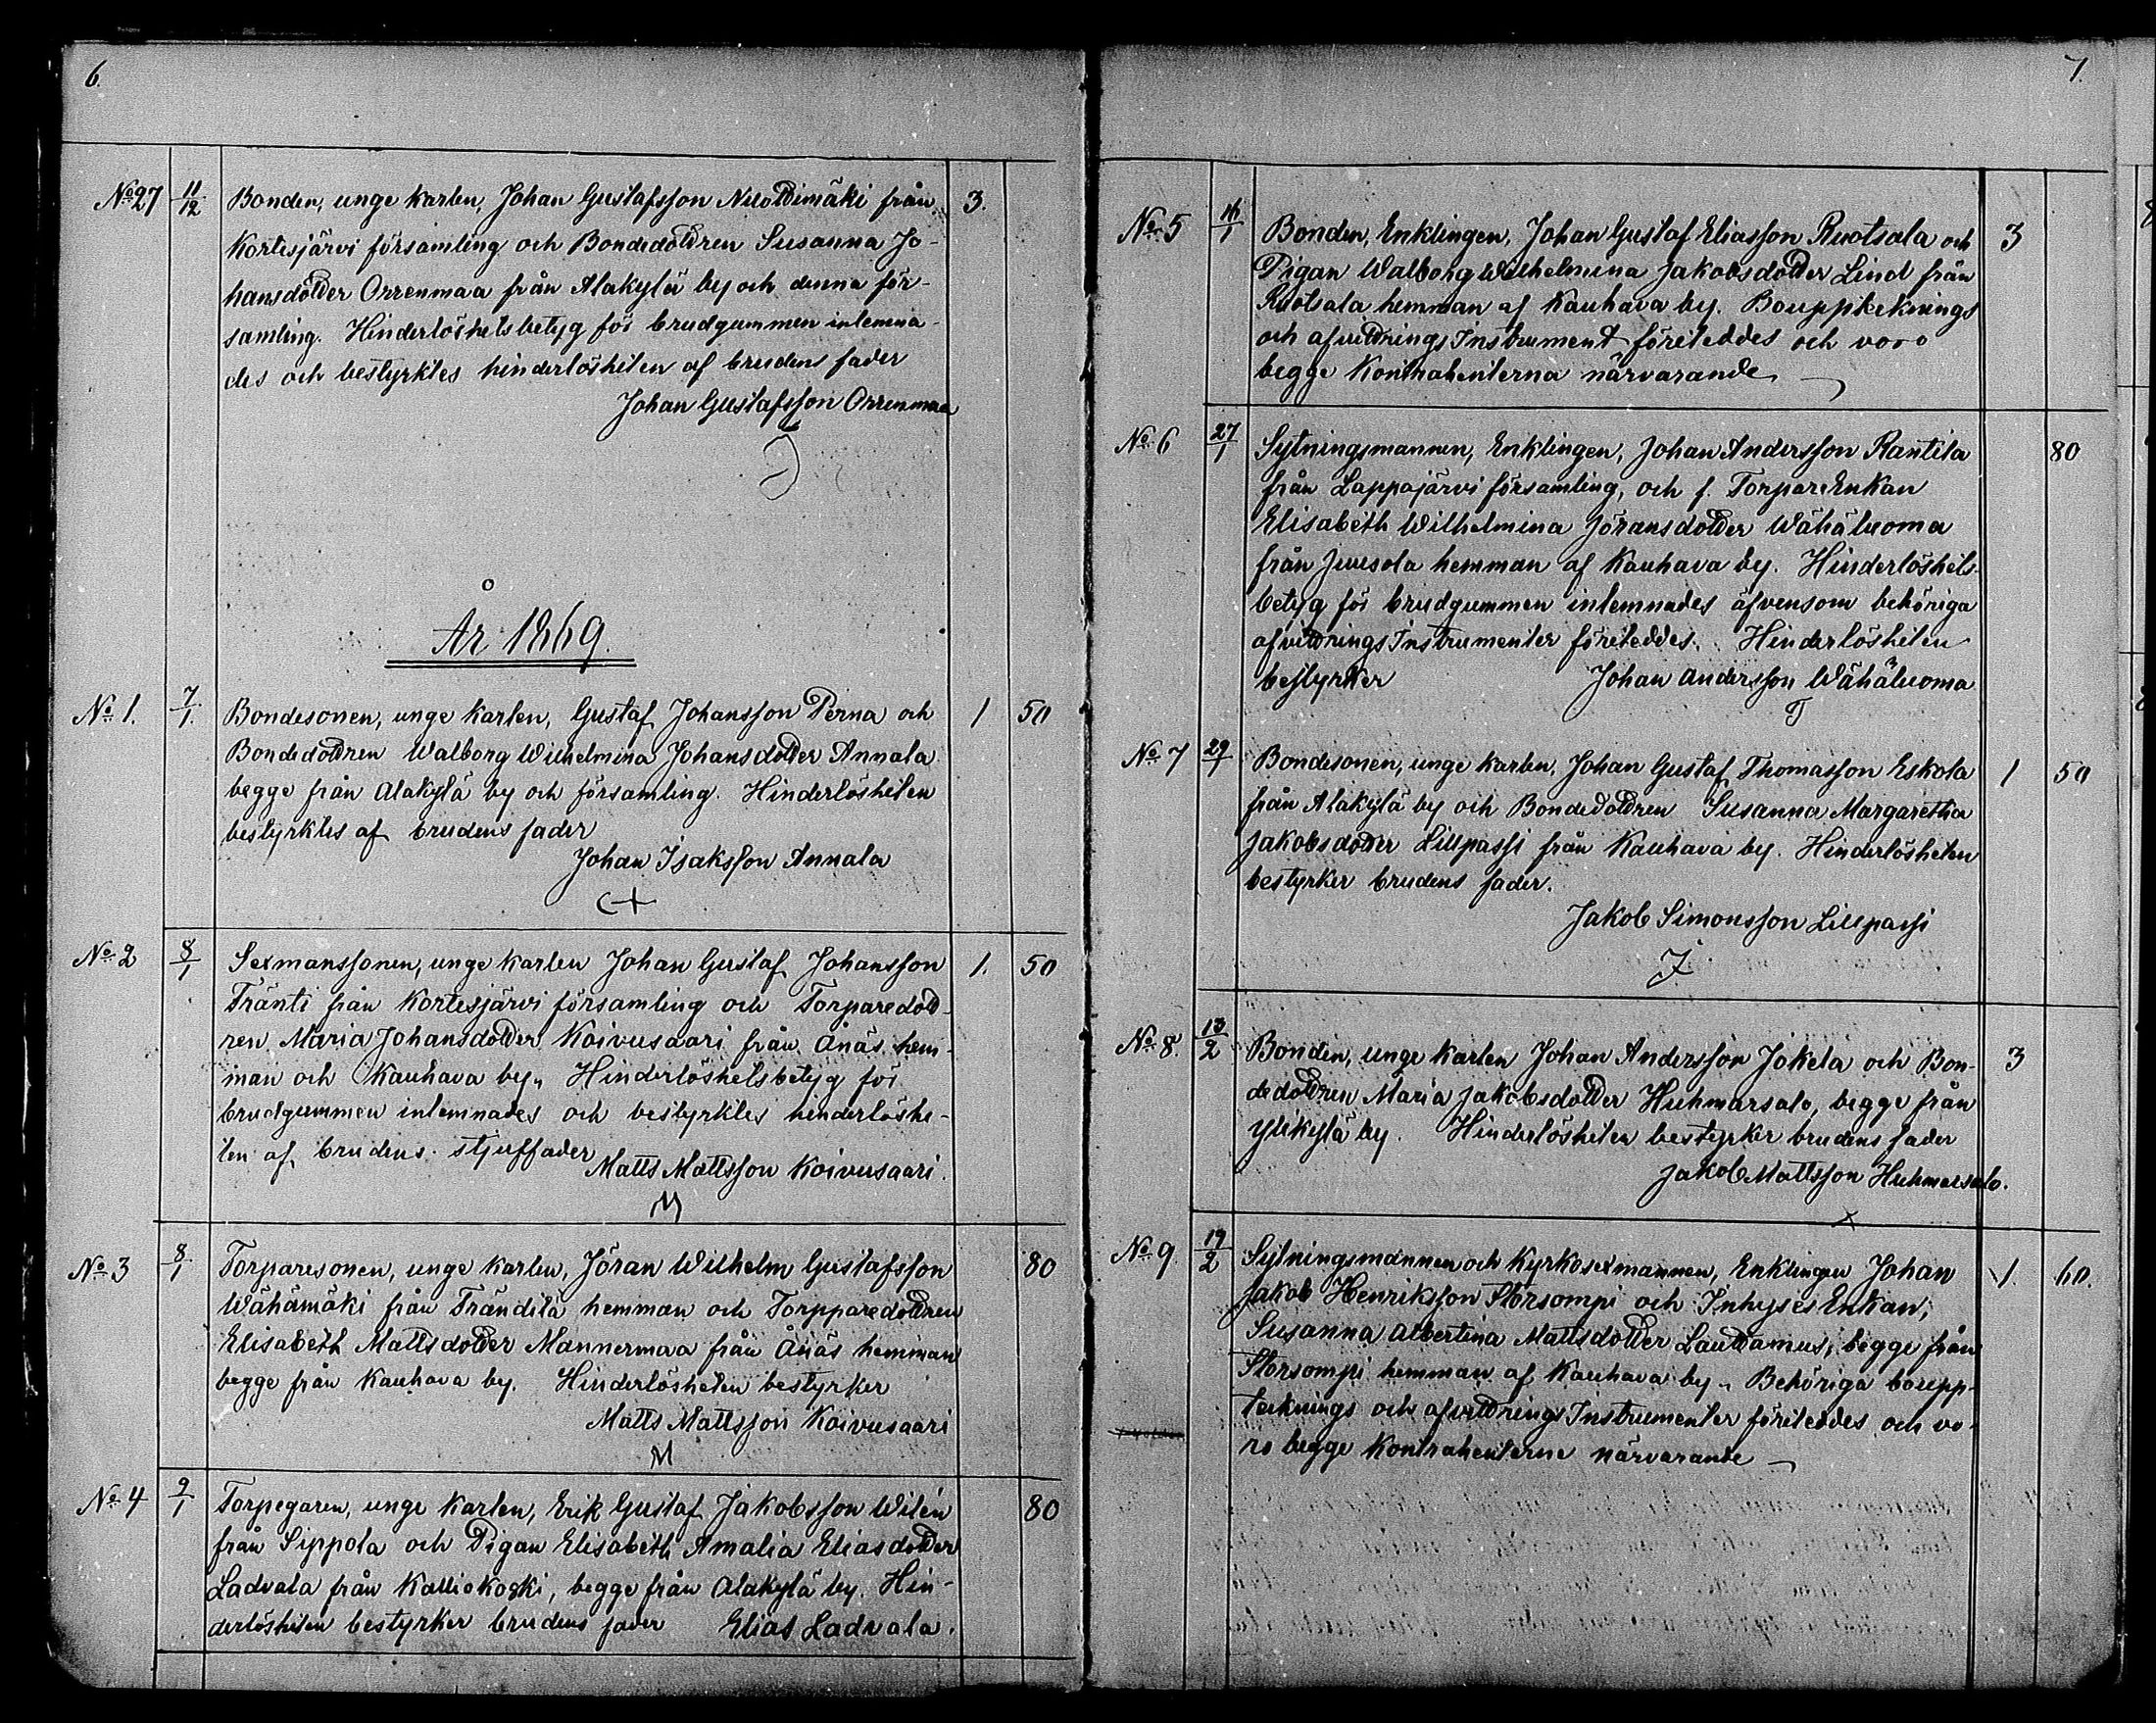 6.
No 27 11/12 Bonden, unge karlen, Johan Gustafsson från 3.
Kortesjärvi församling och Bondedottren Susanna Jo-
hansdotter Orrenmaa från Alakylä by och denna för-
samling. Hinderlöshetsbetyg för brudgummen inlemna-
des och bestyrktes hinderlösheten af brudens fader
Johan Gustafsson Orrenmaa
År 1869.
No 1. 7/1. Bondesonen, unge karlen, Gustaf Johansson Perna och 1 50
Bondedottren Walborg Wilhelmina Johansdotter Annala
begge från Alakylä by och församling. Hinderlösheten
bestyrktes af brudens fader
Johan Isaksson Annala
No 2 8/1 Sexmanssonen, unge karlen Johan Gustaf Johansson 1. 50
Tränti från Kortesjärvi församling och Torparedott-
ren Maria Johansdotter Koivusaari från Ånäs hem-
man och Kauhava by. Hinderlöshetsbetyg för
brudgummen inlemnades och bestyrktes hinderlöshe-
ten af brudens stjuffader
Matts Mattsson Koivusaari.
M
No 3 8/1 Torparesonen, unge karlen, Jöran Wilhelm Gustafsson 80
Wähämäki från Tränditä hemman och Torpparedottren
Elisabeth Mattsdotter Mannermaa från Ånäs hemman
begge från Kauhava by. Hinderlösheten bestyrker
Matts Mattsson Koivusaari
M
No 4 9/1 Torpegaren, unge karlen, Erik Gustaf Jakobsson Wilén 80
från Sippola och Pigan Elisabeth Amalia Eliasdotter
Ladvala från Kalliokoski, begge från Alakylä by. Hin-
derlösheten bestyrker brudens fader Elias Ladvala.
7.
No 5 /1 Bonden, Enklingen, Johan Gustaf Eliasson Ruotsala och 3
Pigan Walborg Wilhelmina Jakobsdotter Lind från
Ruotsala hemman af Kauhava by. Bouppteknings
och afvittrings Instrument företeddes och voro
begge Kontrahenterna närvarande
No 6 27/1 Sytningsmannen, Enklingen, Johan Andersson Rantila 80
från Lappajärvi församling, och f. TorpareEnkan
Elisabeth Wilhelmina Jöransdotter Wähäluoma
från Juusola hemman af Kauhava by. Hinderlöshets-
betyg för brudgummen inlemnades äfvensom behöriga
afvittrings Instrumenter företeddes. Hinderlösheten
bestyrker Johan Andersson Wähäluoma
No 7 29/1 Bondesonen, unge karlen, Johan Gustaf Thomasson Eskola 1 50
från Alakylä by och Bondedottren Susanna Margaretha
Jakobsdotter Lillpassi från Kauhava by. Hinderlösheten
bestyrker brudens fader.
Jakob Simonsson Lillpassi
J
No 8. 13/2 Bonden, unge karlen Johan Andersson Jokela och Bon- 3
dedottren Maria Jakobsdotter Huhmarsalo, begge från
Ylikylä by. Hinderlösheten bestyrker brudens fader
Jakob Mattsson Huhmarsalo.
X
No 9. 19/2 Sytningsmannen och Kyrkosexmannen, Enklingen Johan 1. 60.
Jakob Henriksson Storsompi och Inhyses Enkan,
Susanna Albertina Mattsdotter Lauttamus, begge från
Storsompi hemman af Kauhava by. Behöriga boupp-
teknings och afvittrings Instrumenter företeddes och vo-
ro begge Kontrahenterne närvarande